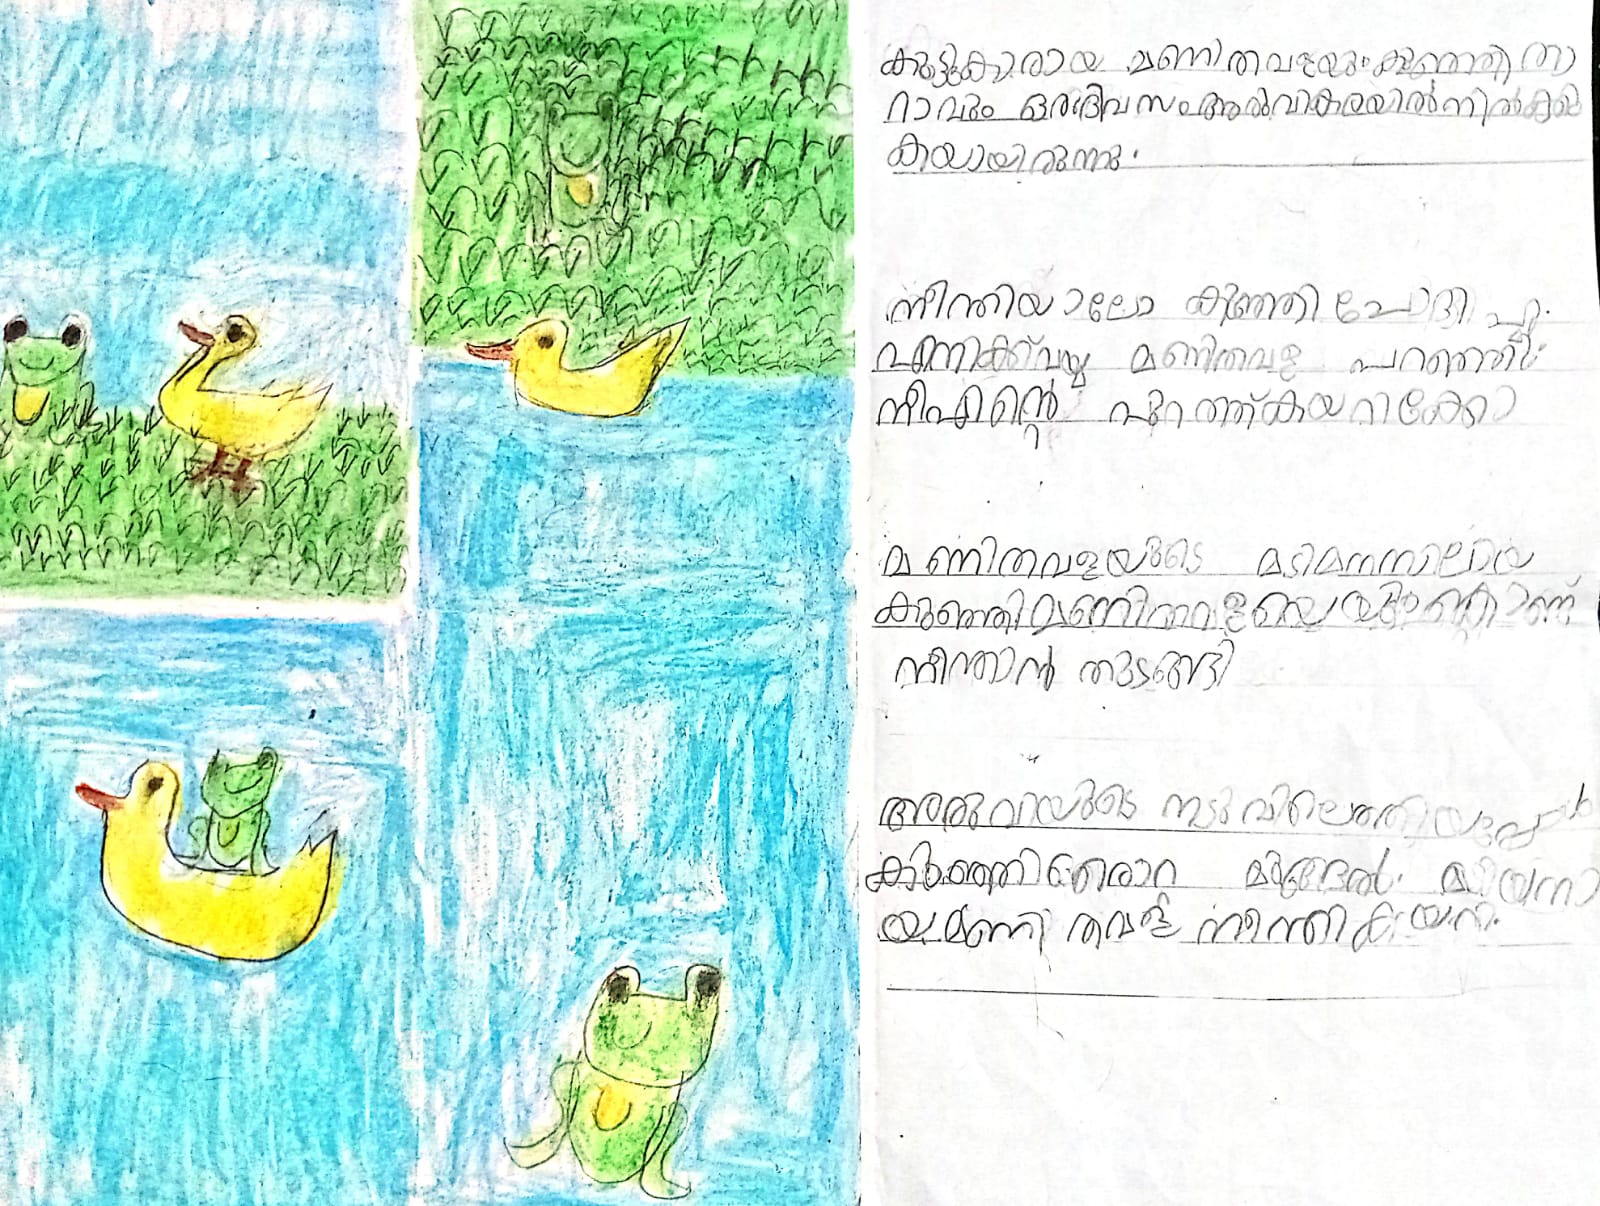 കൂട്ടുകാരായ മണിതവളയും കുഞ്ഞി താ
റാവും ഒരുദിവസം അരുവികരയിൽ നിൽക്കു
കയായിരുന്നു.
നീന്തിയാലോ കുഞ്ഞി ചോദിച്ചു.
എനിക്ക് വയ്യ മണിതവള പറഞ്ഞു
നീഎന്റെ പുറത്ത് കയറിക്കോ
മണിതവളയുടെ മടിമനസിലായ
കുഞ്ഞി മണിതവളയെയും കൊണ്ട്
നീന്താൻ തുടങ്ങി
അരുവിയുടെ നടുവിലെത്തിയപ്പോൾ
കുഞ്ഞി ഒരൊറ്റ മുങ്ങൽ. മടിയനാ
യ മണി തവള നീന്തി കയറി.